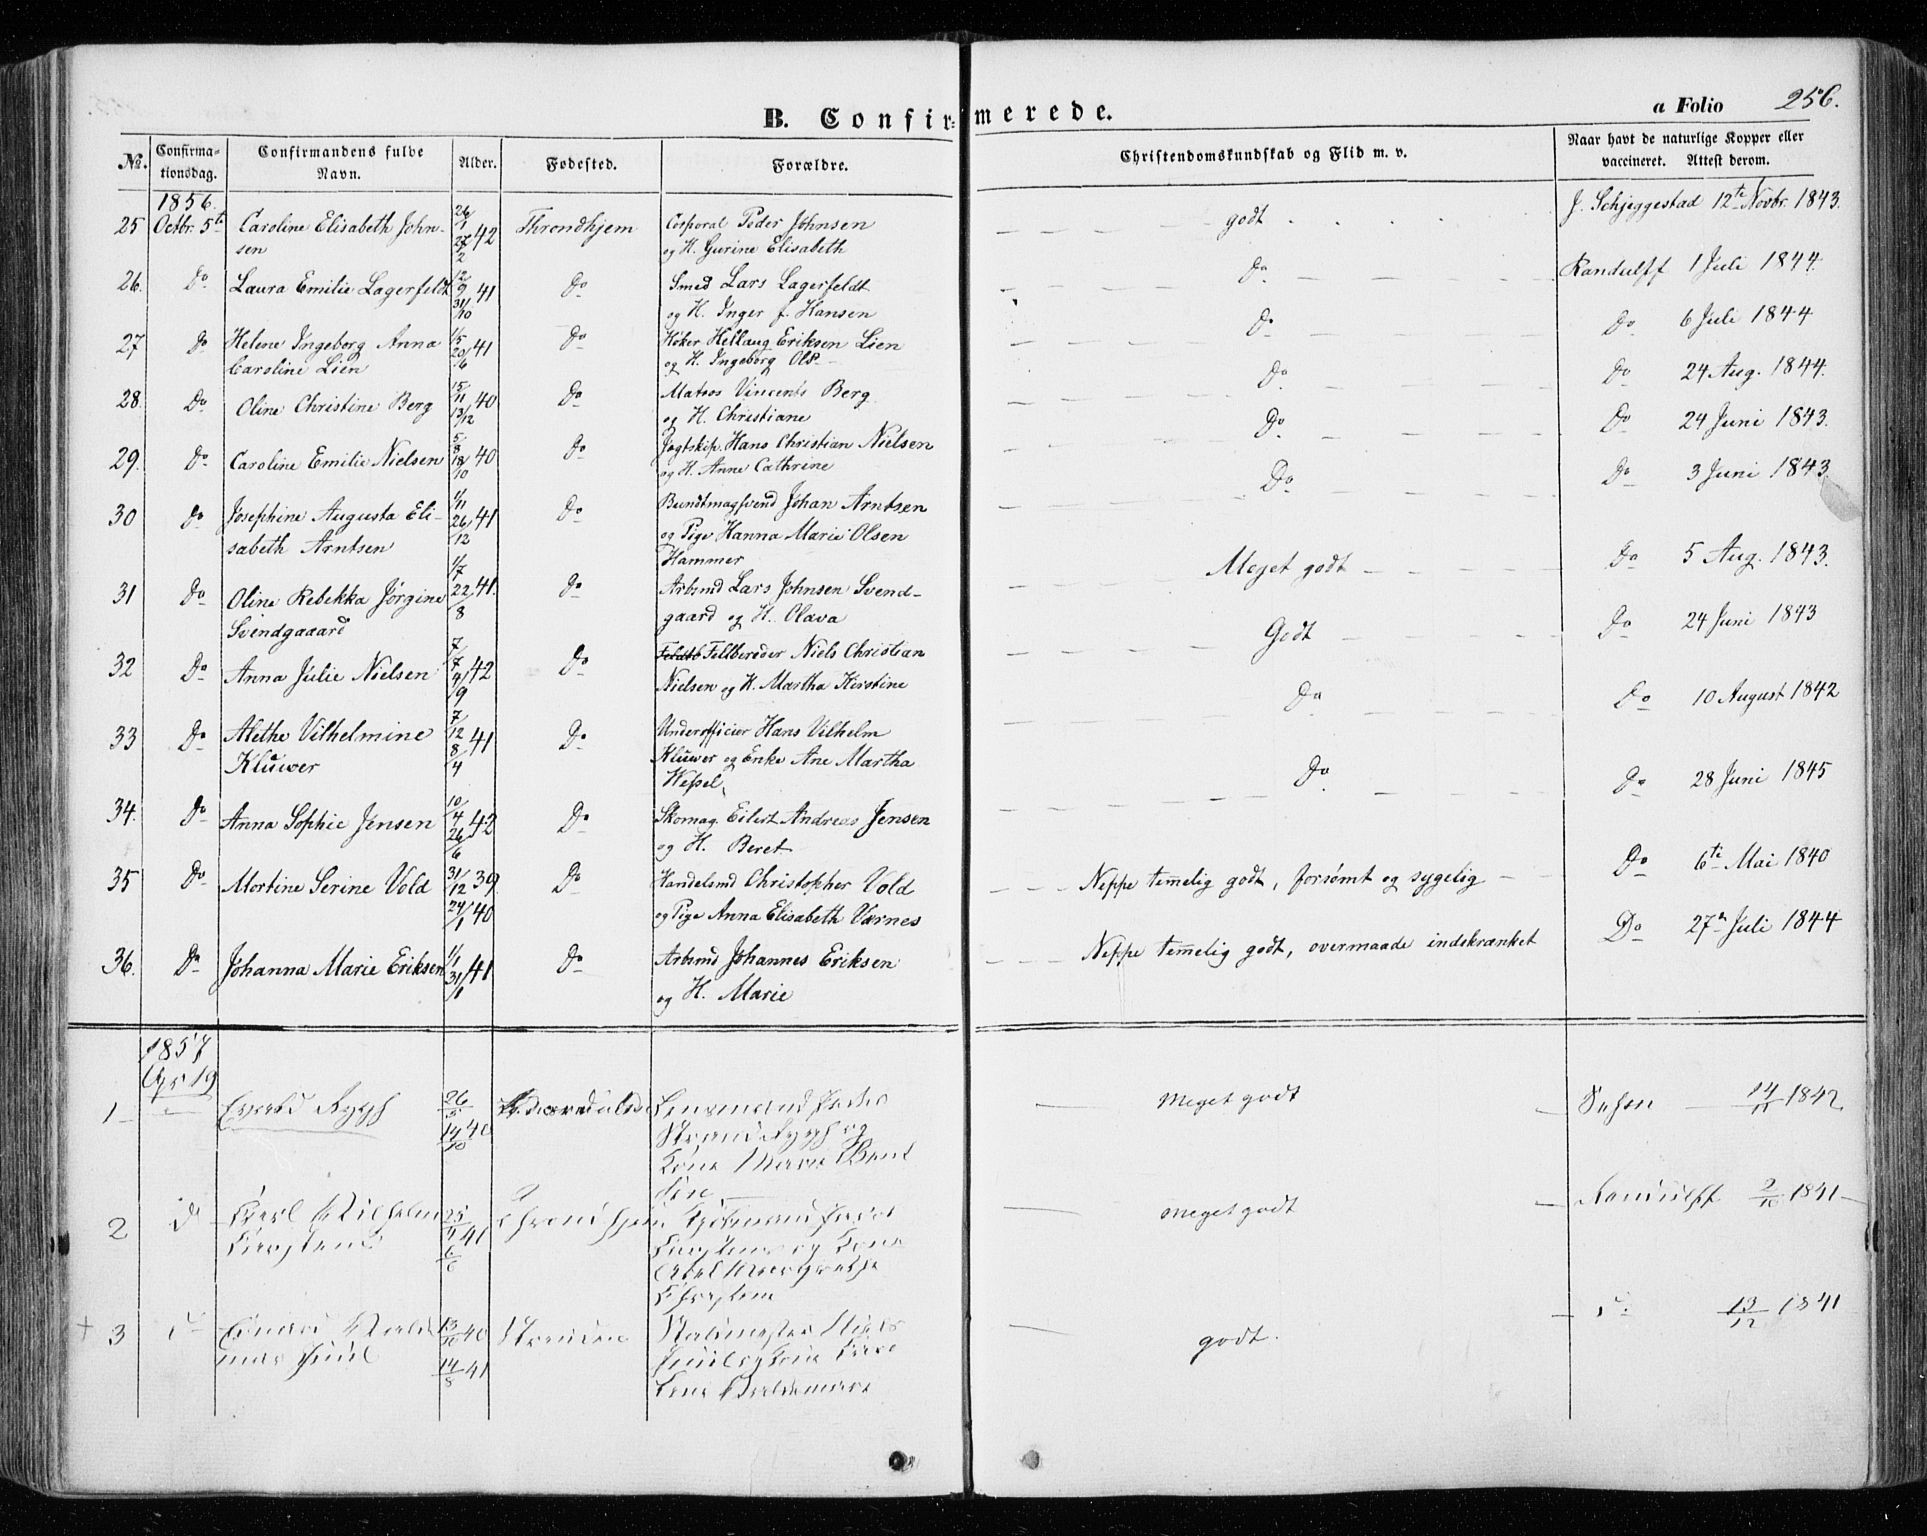 B. Confir=merede.
a Folio 256.
No. Confirma-tionsdag. Confirmandens fulde Navn. Alder. Fødested. Forældre. Christendomskundskab og Flid m. v. Naar havt de naturlige Kopper eller vaccineret. Attest derom.
1856.
25 Octbr. 5te Caroline Elisabeth John- 26/1 Throndhjem Corporal Peder Johnsen godt J. Schjeggestad 12te Novbr. 1843.
sen 27/2 42 og H. Gurine Elisabeth
26. Do Laura Emilie Lagerfeldt 12/9 41 Do Smed Lars Lagerfeldt Do Randulff 1 Juli 1844
31/10 og H. Inger f. Hansen
27 Do Helene Ingeborg Anna 1/5 41 Do Høker Hellaug Eriksen Lien Do Do 6 Juli 1844
Caroline Lien 20/6 og H. Ingeborg Ols-
28. Do Oline Christine Berg 15/11 40 Do Matros Vincents Berg Do Do 24 Aug. 1844.
13/12 og H. Christiane
29. Do Caroline Emilie Nielsen 5/8 40 Do Jagtskip. Hans Christian Nielsen Do Do 24 Juni 1843.
18/10 og H. Anne Cathrine
30 Do Josephine Augusta Eli- 1/11 41 Do Bundtmagsvend Johan Arntsen Do Do 3 Juni 1843.
sabeth Arntsen 26/12 og Pige Hanna Marie Olsen
Hammer
31 Do Oline Rebekka Jørgine 1/7 41. Do Arbmd Lars Johnsen Svend- Meget godt Do 5 Aug. 1843.
Svendgaaard 22/8 gaard og H. Olava
32 Do Anna Julie Nielsen 7/7 42 Do Feldtb Fellbereder Niels Christian Godt Do 24 Juni 1843
4/9 Nielsen og H. Martha Kirstine
33 Do Alethe Vilhelmine 7/12 41 Do Underofficier Hans Vilhelm Do Do 10 August 1842
Kluwer 8/4 Kluwer og Enke Ane Martha
Wessel
34. Do Anna Sophie Jensen 10/4 42 Do Skomag. Eilert Andreas Jensen Do Do 28 Juni 1845
26/6 og H. Beret
35 Do Mortine Serine Vold 31/12 39 Do Handelsmd Christopher Vold Neppe temelig godt, forsømt og sygelig Do 6te Mai 1840
24/1 40 og Pige Anna Elisabeth Værnes
36. Do Johanna Marie Eriksen 1/1 41 Do Arbmd Johannes Eriksen Neppe temelig godt, overmaade indskrænket Do 27n Juli 1844
31/1 og H. Marie
1857
Apr 19
1 26/5 Meget godt 14/11 1842
14/10 40 og
Kone
2 D Carl Vilhelm 25/ 41 Throndhjem Meget godt Randulff 2/10 1841
og Kone
+ 3 13/10 40 Strinden godt. 13/12 1841
14/8 41